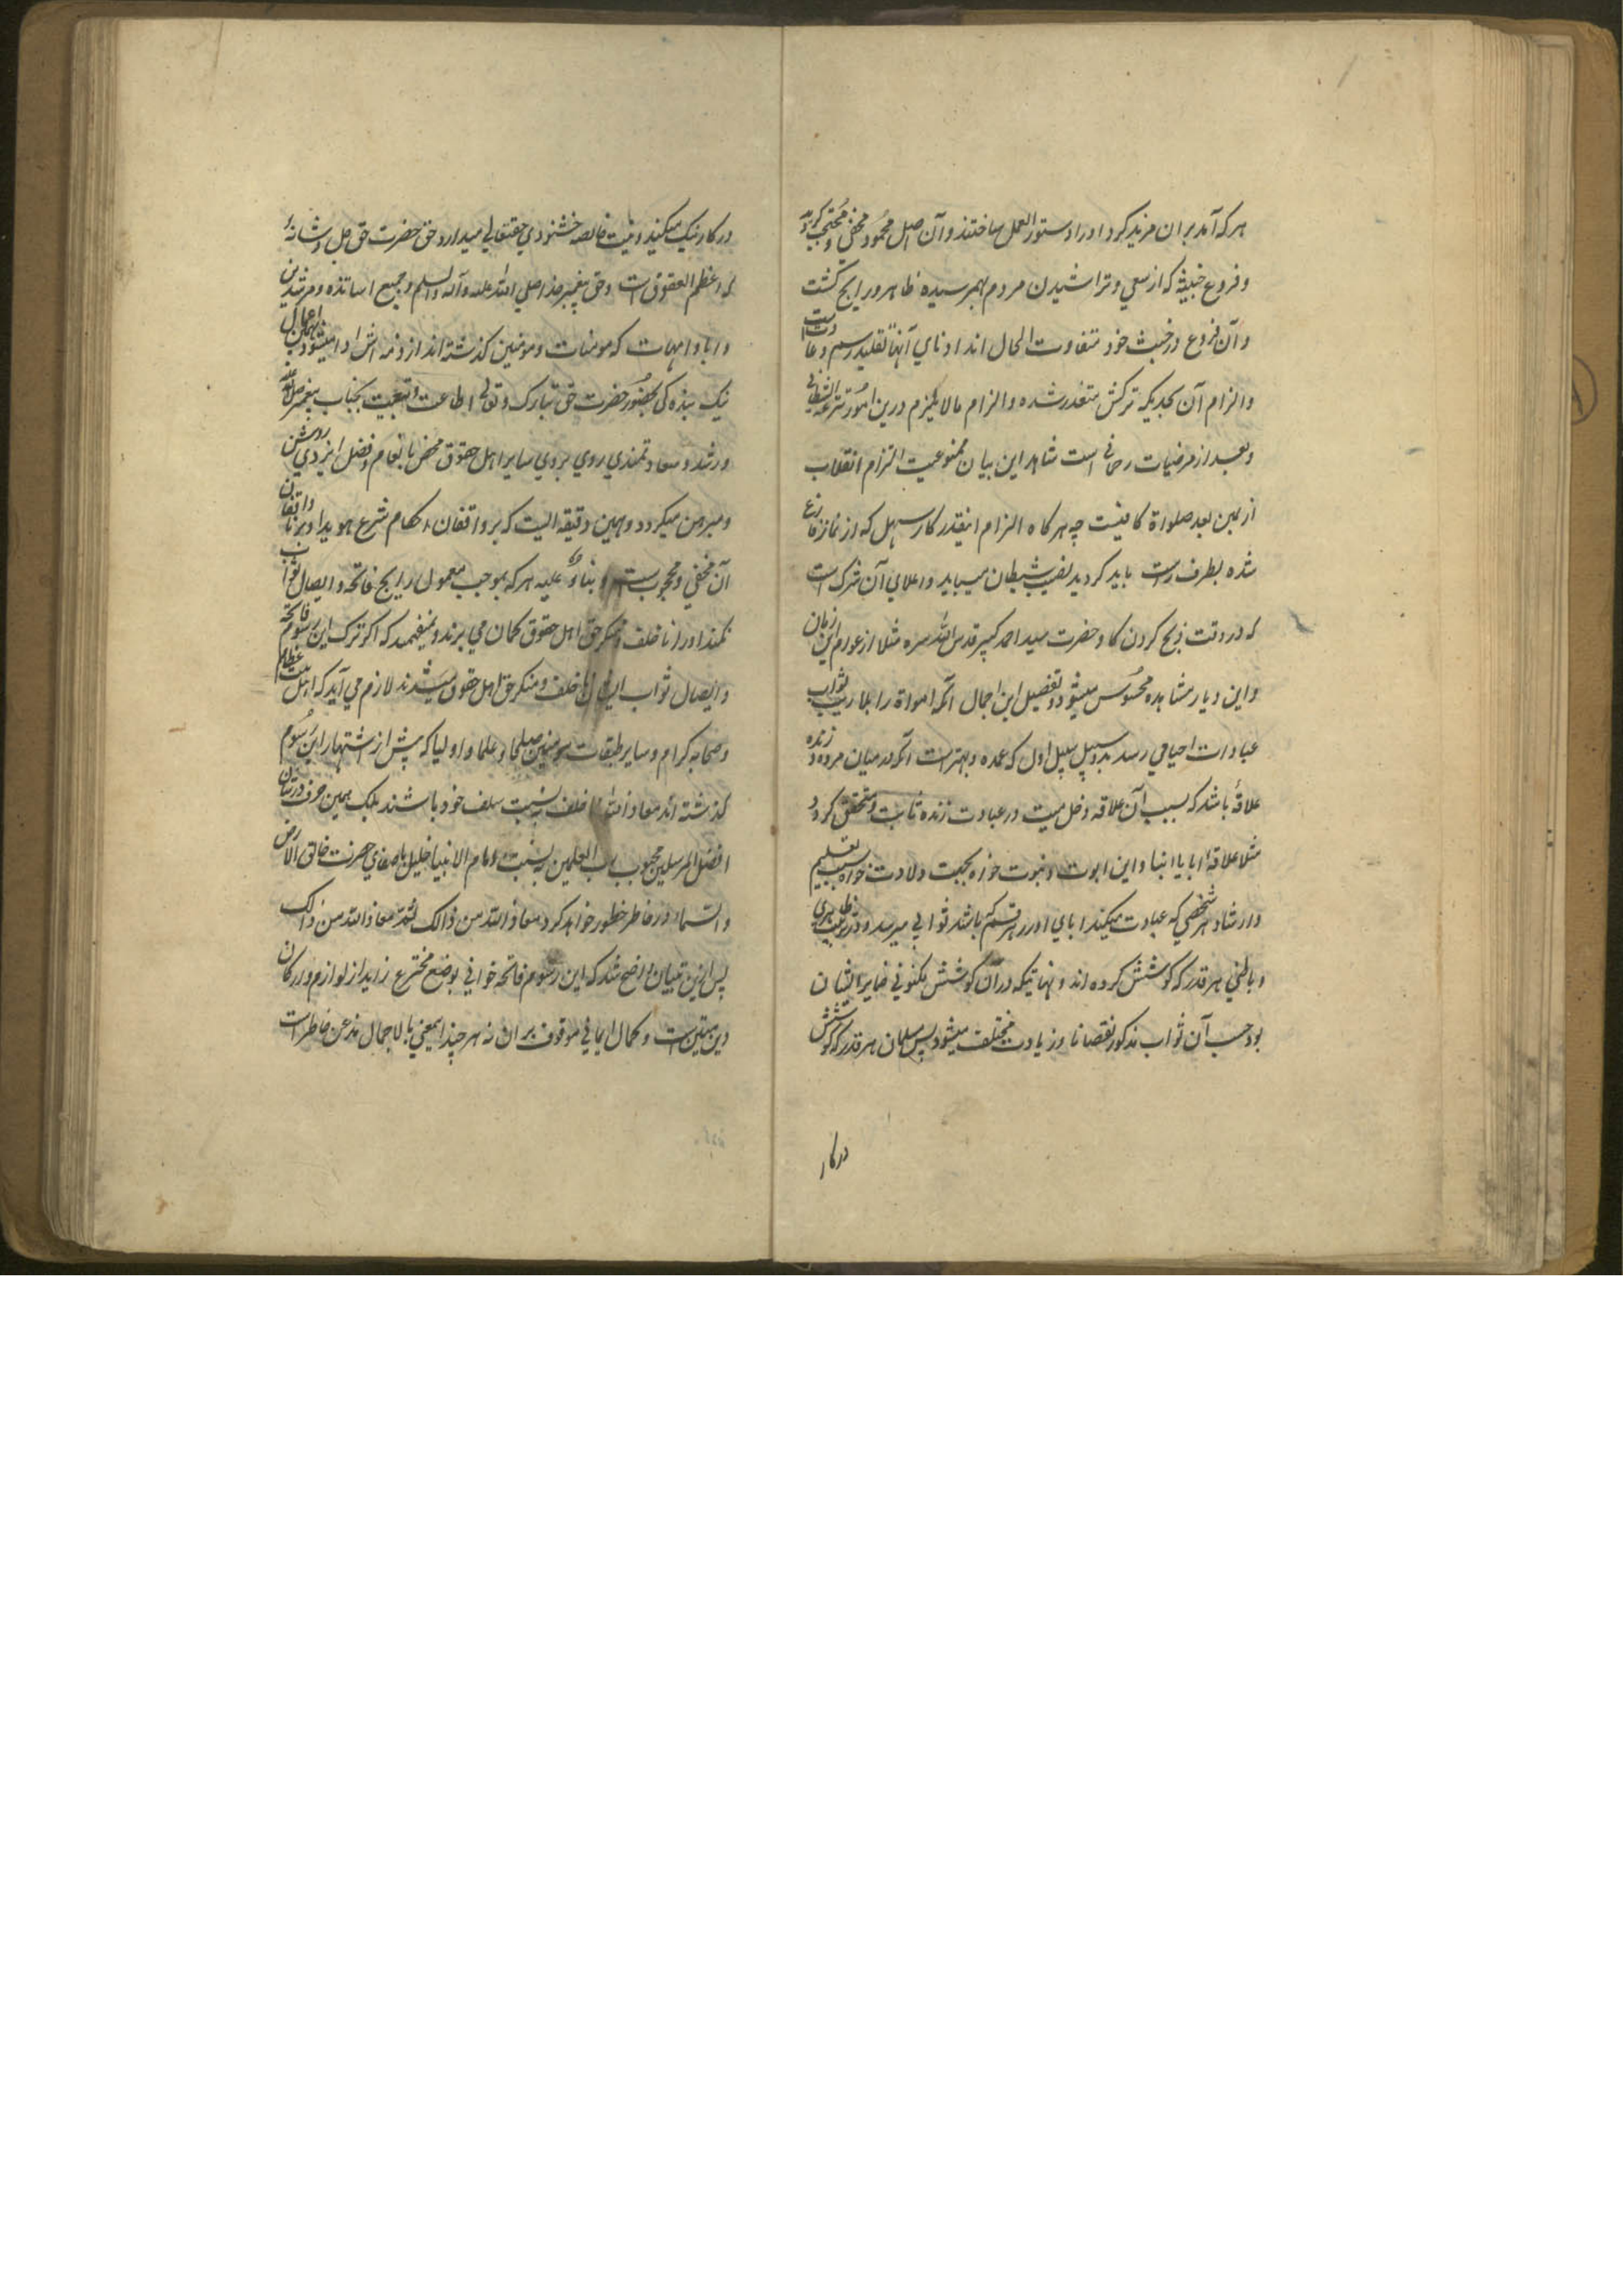 هرکه آمد بران مزید کرد او را دستور العمل ساختند و آن اصل محمود مخفی و محتجب کردید
و فروع خبیثه که از سعی و تراشیدن مردم بهم رسیده ظاهر و رایج کشت
و آن فروع در خبث خود متفاوت الحال اند ادنای آنها تقلید رسم و عادات است
و الزام آن بحدیکه ترکش متعذر شده و الزام مالا یلزم درین امور شرعة الشیطان
و بعد از مرضیات رحمانی است شاهد این بیان ممنوعیت التزام انقلاب
از یمین بعد صلواة کافیست چه هرکاه الزام اینقدر کار سهل که از نماز فارغ
شده بطرف راست باید کردید نصیب شیطان میباید و اعلای آن شرک است
که در وقت ذبح کردن کاو حضرت سید احمد کبیر قدس الله سره مثلا از عوام این زمان
و این دیار مشاهده محسوس میشود و تفصیل این اجمال آنکه امواة را بلا ریب ثواب
عبادات احیا می رسد بدو سبیل سبیل اول که عمده و بهتر است آنکه در میان مرده و زنده
علاقهٔ باشد که بسبب آن علاقه دخل میت در عبادت زنده ثابت و متحقق کردد
مثلا علاقهٔ ابا با ابنا و این ابوت و بنوت خواه بجهت ولادت خواه بسبب تعلیم
و ارشاد هر شخصی که عبادت میکند ابای او را هر قسم که باشند ثوابی میرسد و در تربیت ظاهری
و باطنی هر قدر که کوشش کرده اند و نهایتیکه در آن کوشش مکنون فی ضمایر ایشان
بود حسب آن ثواب مذکور نقصانا و زیادت مختلف میشود پس مسلمان هر قدر که کوشش
در کار
در کار نیک میکند و نیت خالصه خشنودی حقتعالی میدارد حق حضرت حق جل و شانهٔ
که اعظم الحقوق است و حق پیغمبر خدا صلی الله علیه و آله و السلم و جمیع اساتذه و مرشدین
و ابا و امهات که مومنات و مومنین کذشته اند از ذمه اش ادا میشود بهمان اعمال
نیک بنده کی بحضور حضرت حق تبارک و تعالی اطاعت و تبعیت بجناب پیغمبر صلی الله علیه
و رشد و سعادتمندی روی بروی سایر اهل حقوق محض بانعام و فضل ایزدی روشن
و مبرهن میکردد و همین دقیقه ایست که بر واقفان احکام شرع هویدا و بر نا واقفان
آن مخفی و محجوبست و بناءً علیه هرکه بموجب معمول رایج فاتحه و ایصال ثواب
نکند او را نا خلف و منکر حق اهل حقوق کمان می برند و نمیفهمند که اکر ترک این رسوم فاتحه
و ایصال ثواب ایشان نا خلف و منکر حق اهل حقوق میشدند لازم می آید که اهل بیت عظام
و صحابه کرام و سایر طبقات مومنین صلحا و علما و اولیا که پیش از اشتهار این رسوم
کذشته اند معاذ الله نا خلف به نسبت سلف خود باشند بلک همین حرف در شان
افضل المرسلین محبوب رب العلمین به نسبت امام الانبیا خلیل با صفای حضرت خالق الارض
و السماء در خاطر خطور خواهد کرد معاذ الله من ذالک ثم معاذ الله من ذالک
پس ازین تبیان واضح شد که این رسوم فاتحه خوانی بوضع مخترع زاید از لوازم و ارکان
دین متین است و کمال ایمانی موقوف بر ان نه هر چند اینمعنی بالاجمال مذعن خاطر است